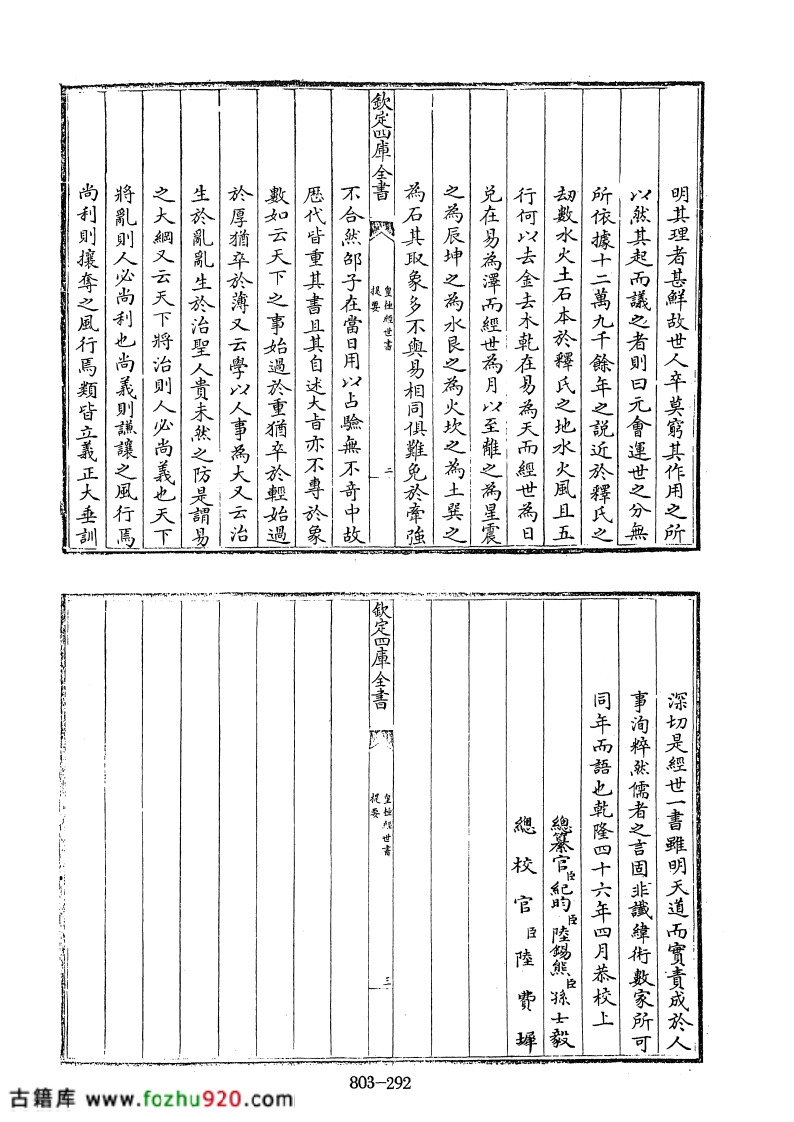 明其理者甚鮮故世人卒莫窮其作用之所
以然其起而議之者則曰元會運世之分無
所依據十二萬九千餘年之説近於釋氏之
刼數水火土石本於釋氏之地水火風且五
行何以去金去木乾在易為天而經世為日
兑在易為澤而經世為月以至離之為星震
之為辰坤之為水艮之為火坎之為土巽之
為石其取象多不與易相同俱難免於牽強
欽定四庫全書
皇極經世書
提要
二
不合然邵子在當日用以占驗無不奇中故
歴代皆重其書且其自述大㫖亦不專於象
數如云天下之事始過於重猶卒於輕始過
於厚猶卒於薄又云學以人事為大又云治
生於亂亂生於治聖人貴未然之防是謂易
之大綱又云天下將治則人必尚義也天下
將亂則人必尚利也尚義則謙讓之風行焉
尚利則攘奪之風行焉類皆立義正大垂訓
深切是經世一書雖明天道而實責成於人
事洵粹然儒者之言固非讖緯術數家所可
同年而語也乾隆四十六年四月恭校上
總纂官臣紀昀臣陸錫熊臣孫士毅
總校官臣陸費墀
欽定四庫全書
皇極經世書
提要
三
803-292
古籍库 www.fozhu920.com